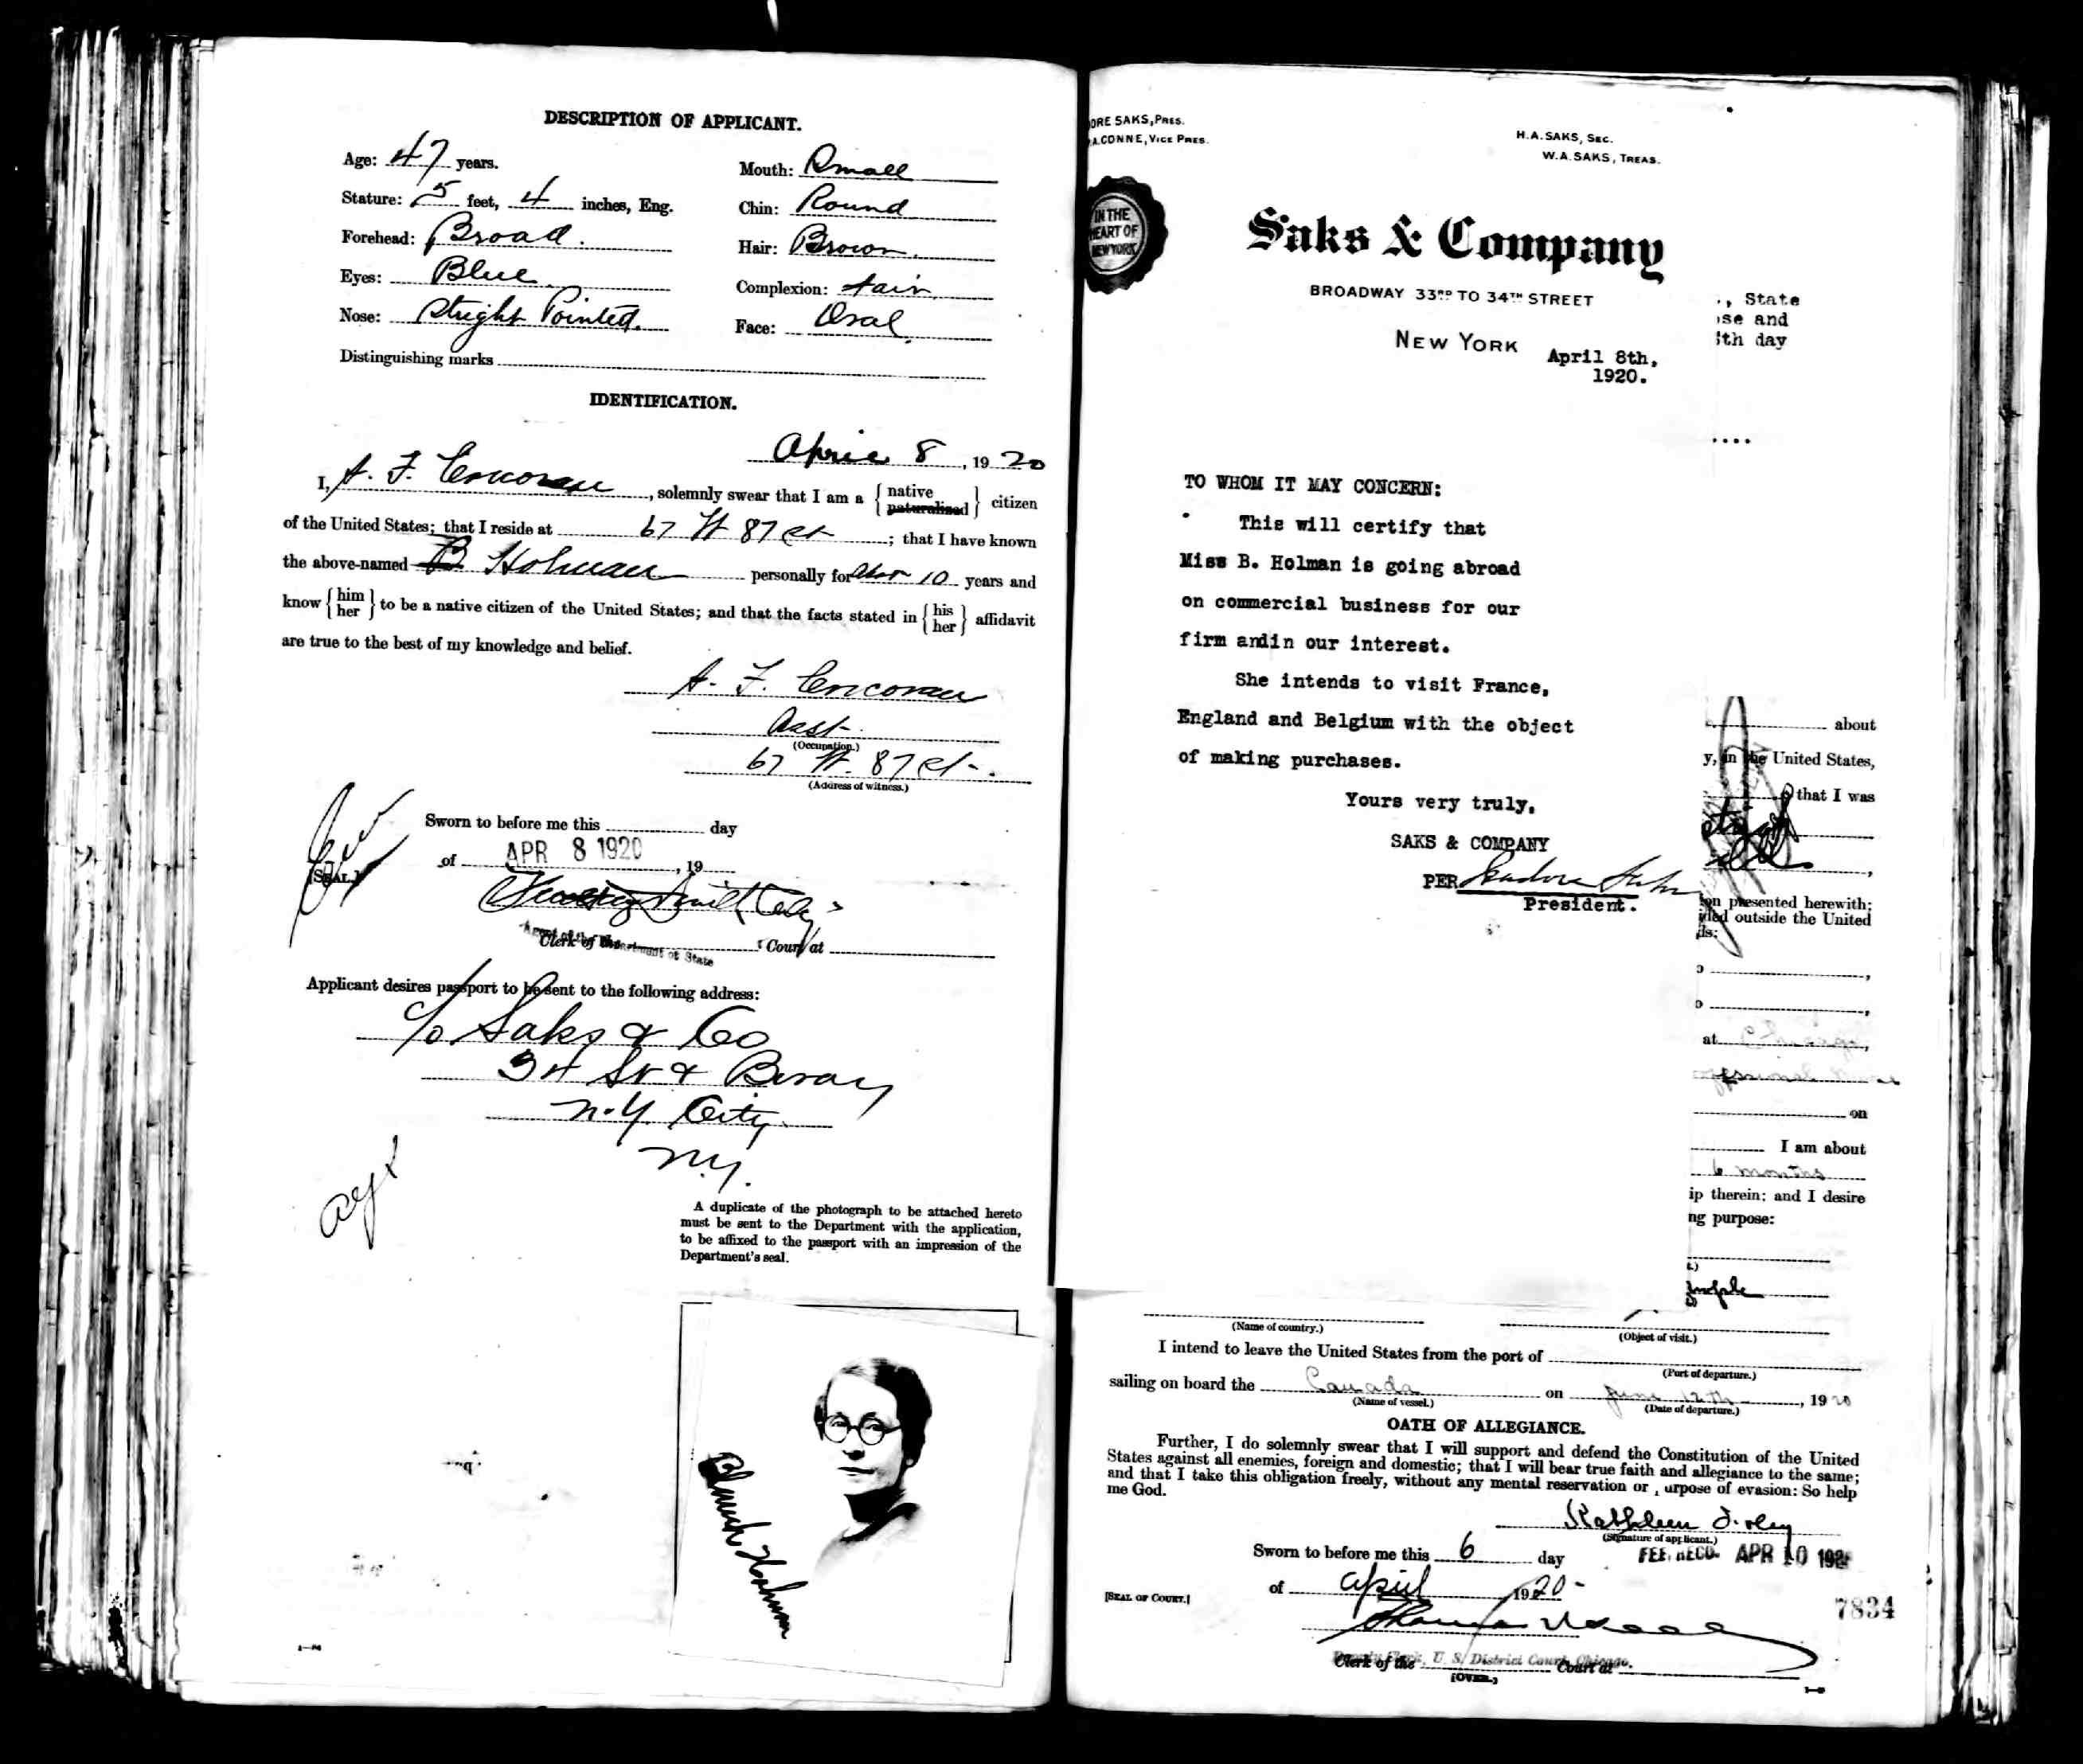 DESCRIPTION OF APPLICANT.
Age: 47 years.
Mouth: Small
Stature: 5 feet, 4 inches, Eng.
Chin: Round
Forehead: Broad.
Hair: Brown.
Eyes: Blue
Complexion: fair
Nose: Stright Pointed.
Face: Oval.
Distinguishing marks
IDENTIFICATION.
April 8, 1920
I, A. F. Corcoran, solemnly swear that I am a { native naturalized } citizen
of the United States; that I reside at 67 W 87 St; that I have known
the above-named B Holman personally for 10 years and
know { him her } to be a native citizen of the United States; and that the facts stated in { his her } affidavit
are true to the best of my knowledge and belief.
A. F. Corcoran
Asst.
(Occupation.)
67 W. 87 St.
(Address of witness.)
Sworn to before me this day
of APR 8 1920, 19
[SEAL.]
Agent of the Department of State
Clerk of the Court at
Applicant desires passport to be sent to the following address:
c/o Saks & Co
34 St & Bway
N.Y. City
N.Y.
A duplicate of the photograph to be attached hereto
must be sent to the Department with the application,
to be affixed to the passport with an impression of the
Department's seal.
Blanch Holman
ORE SAKS, PRES.
A. CONNE, VICE PRES.
H.A. SAKS, SEC.
W.A. SAKS, TREAS.
IN THE
HEART OF
NEW YORK
Saks & Company
BROADWAY 33RD TO 34TH STREET
NEW YORK April 8th,
1920.
TO WHOM IT MAY CONCERN:
This will certify that
Miss B. Holman is going abroad
on commercial business for our
firm andin our interest.
She intends to visit France,
England and Belgium with the object
of making purchases.
Yours very truly,
SAKS & COMPANY
PER Isadore Saks
President.
, State
se and
th day
about
y, in the United States,
that I was
on presented herewith;
ided outside the United
ds:
at Chicago,
on
I am about
6 months
ip therein; and I desire
ng purpose:
(Name of country.)
(Object of visit.)
I intend to leave the United States from the port of
(Port of departure.)
sailing on board the Canada on June 12th, 1920
(Name of vessel.)
(Date of departure.)
OATH OF ALLEGIANCE.
Further, I do solemnly swear that I will support and defend the Constitution of the United
States against all enemies, foreign and domestic; that I will bear true faith and allegiance to the same;
and that I take this obligation freely, without any mental reservation or , urpose of evasion: So help
me God.
Kathleen
(Signature of applicant.)
Sworn to before me this 6 day
FEE RECD. APR 10 192
of April 1920-
[SEAL OF COURT.]
7834
Deputy Clerk, U. S. District Court, Chicago.
Clerk of the Court at
(OVER.)